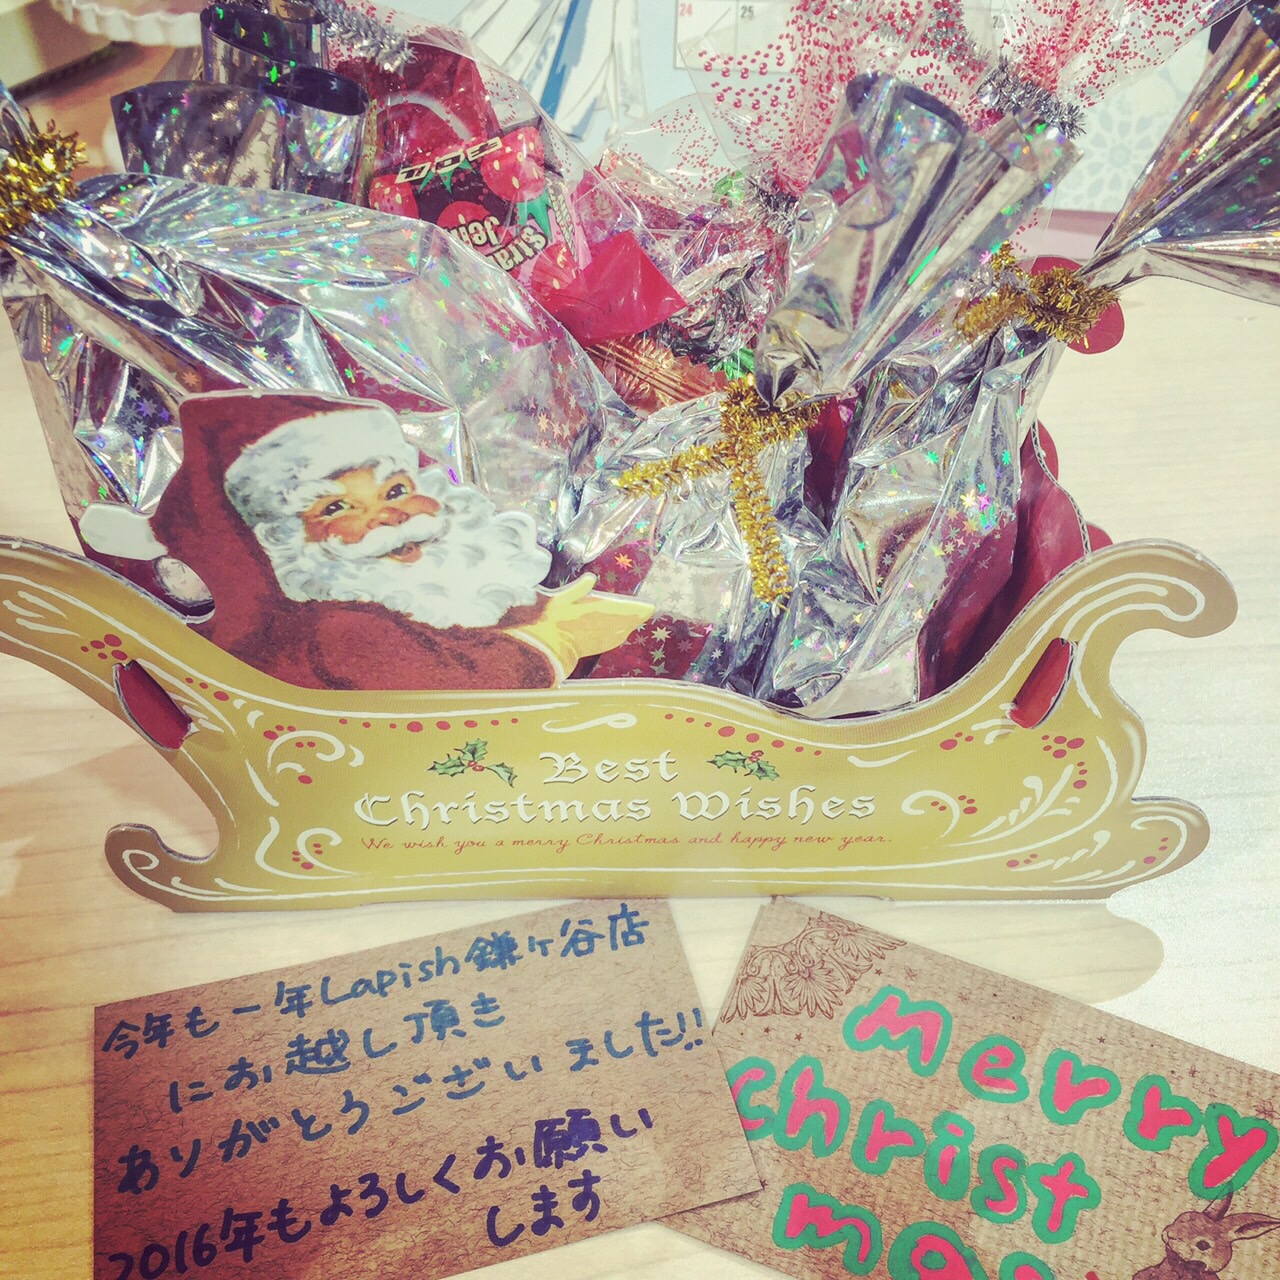 24
25
Best
Christmas Wishes
We wish you a merry Christmas and happy new year.
今年も一年Lapish鎌ヶ谷店
にお越し頂き
ありがとうございました!!
2016年もよろしくお願い
します
merry
christ